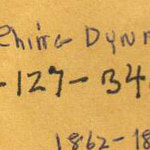 China Dyna
-127-34
1862-18